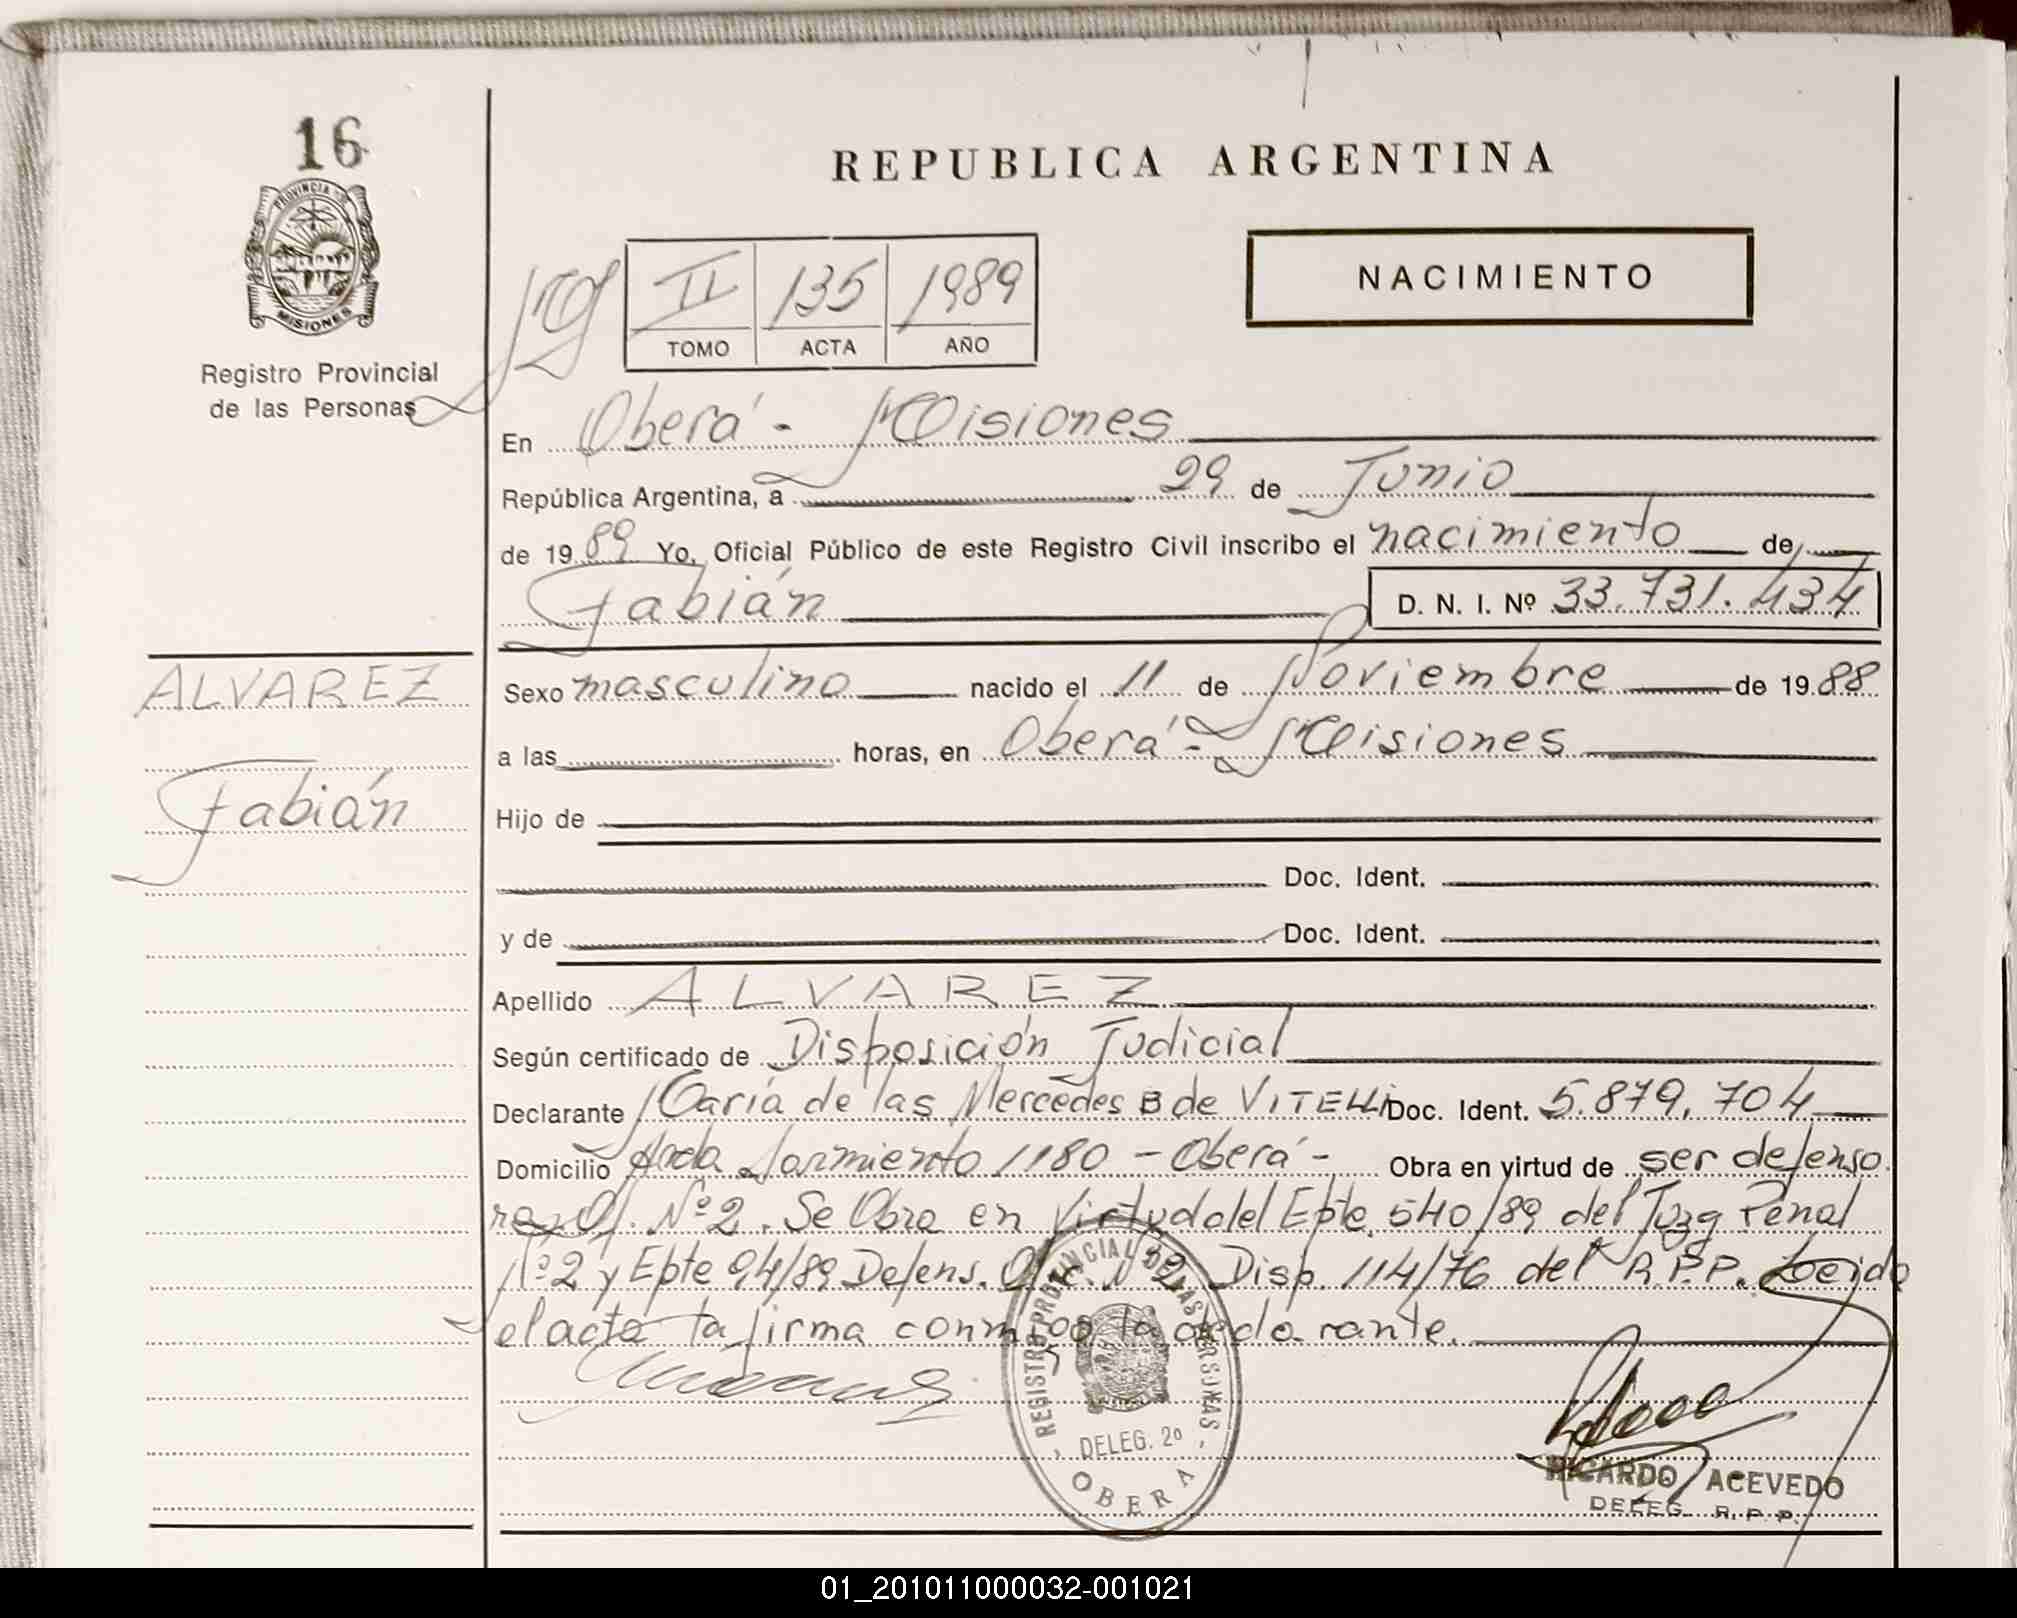 16
PROVINCIA DE
MISIONES
Registro Provincial
de las Personas
REPUBLICA ARGENTINA
II 135 1989
TOMO ACTA AÑO
NACIMIENTO
En Oberá - Misiones
República Argentina, a 29 de Junio
de 19 89 Yo, Oficial Público de este Registro Civil inscribo el nacimiento de
Fabián D. N. I. Nº 33.731.434
ALVAREZ
Fabián
Sexo masculino nacido el 11 de Noviembre de 19 88
a las horas, en Oberá - Misiones
Hijo de
Doc. Ident.
y de Doc. Ident.
Apellido ALVAREZ
Según certificado de Disposición Judicial
Declarante María de las Mercedes B de VITELLI Doc. Ident. 5.879.704
Domicilio Avda Sarmiento 1180 - Oberá - Obra en virtud de ser defenso
ra Of. Nº 2. Se Obra en Virtud del Epte. 540/89 del Juzg Penal
Nº 2 y Epte 94/89 Defens. Ofic. Nº 2, Disp. 114/76 del R.P.P. Leida
el acta la firma conmigo la declarante.
REGISTRO PROVINCIAL DE LAS PERSONAS
DELEG. 2º
OBERA
RICARDO ACEVEDO
DELEG. R. P. P.
01_201011000032-001021